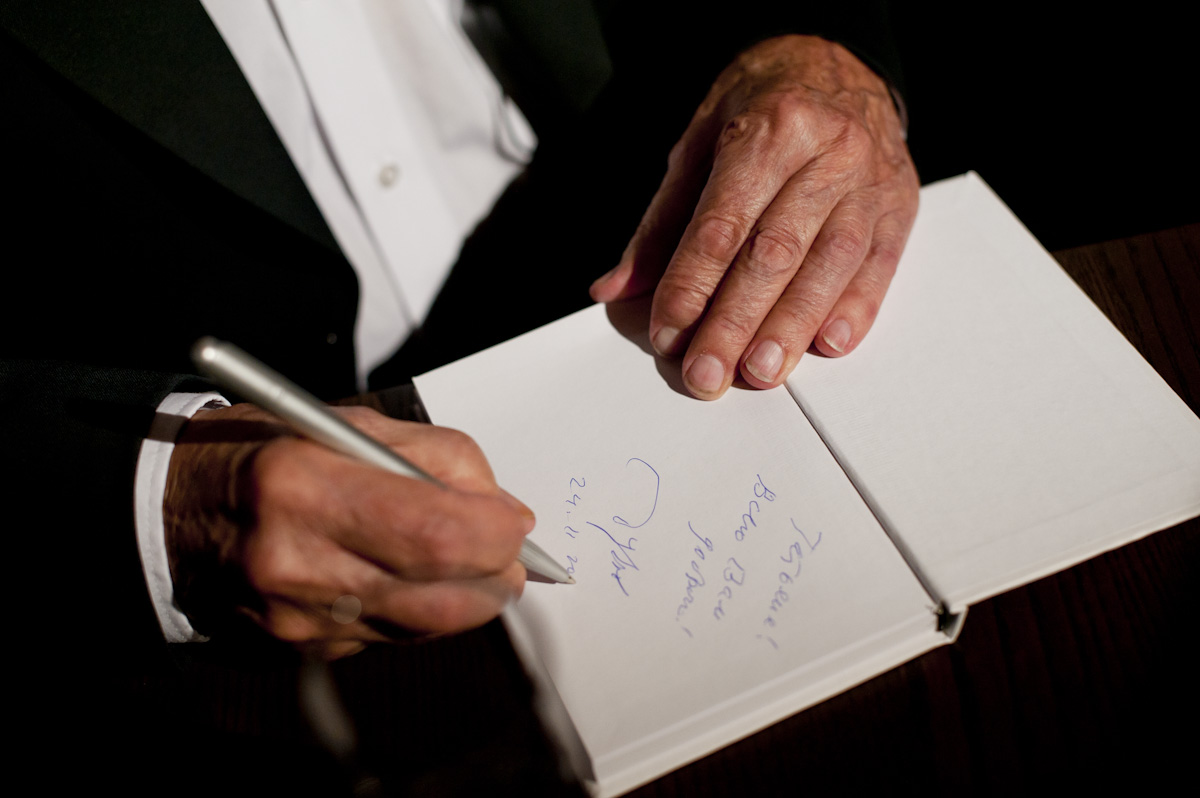 Татьяне!
Всего Вам
доброго!
24.11.20